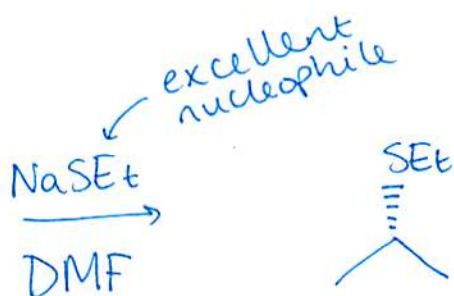 excellent
nucleophile
NaSEt
DMF
SEt